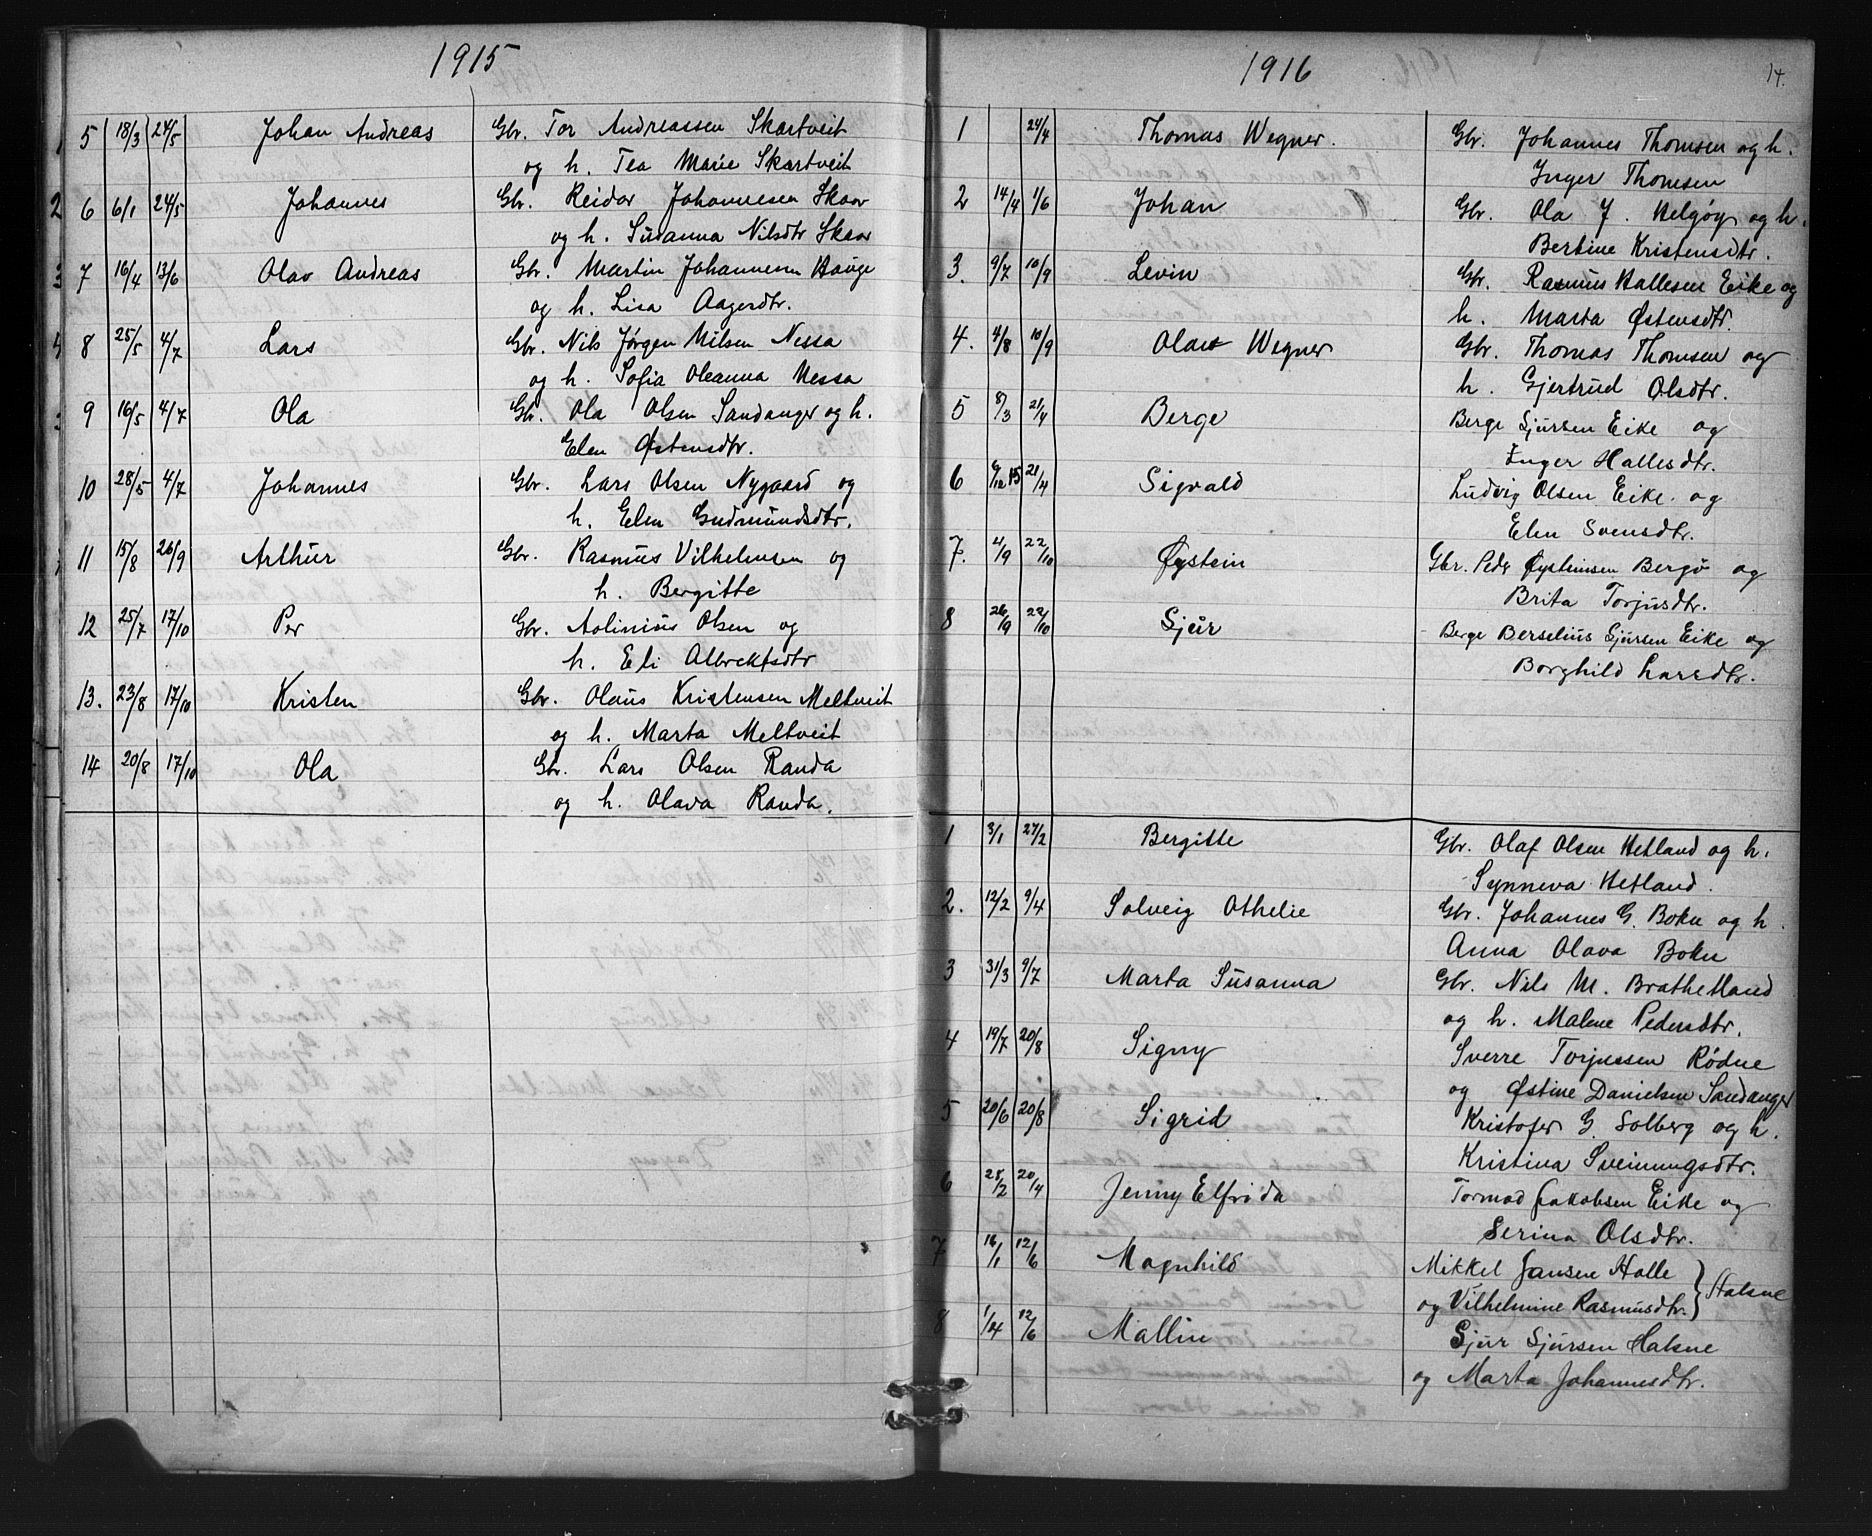 1915
5 18/3 24/5 Johan Andreas Gbr. Tor Andreassen Skartveit
og h. Tea Marie Skartveit
6 6/1 24/5 Johannes Gbr. Reidar Johannesen Skaar
og h. Susanna Nilsdtr Skaar
7 16/4 13/6 Olav Andreas Gbr. Martin Johannesen Hauge
og h. Lisa Aagesdtr.
8 25/5 4/7 Lars Gbr. Nils Jørgen Nilsen Nessa
og h. Sofia Oleanna Nessa
9 16/5 4/7 Ola Gbr. Ola Olsen Sandanger og h.
Elen Østensdtr.
10 28/5 4/7 Johannes Gbr. Lars Olsen Nygaard og
h. Elen Gudmundsdtr.
11 15/8 26/9 Arthur Gbr. Rasmus Vilhelmsen og
h. Bergitte
12 25/7 17/10 Per Gbr. Aolinius Olsen og
h. Eli Albrektsdtr
13. 23/8 17/10 Kristen Gbr. Olaus Kristensen Meltveit
og h. Marta Meltveit
14 20/8 17/10 Ola Gbr. Lars Olsen Randa
og h. Olava Randa.
1916
14.
1 24/4 Thomas Wegner. Gbr. Johannes Thomsen og h.
Inger Thomsen
2 14/4 1/6 Johan Gbr. Ola J. Helgøy og h.
Bertine Kristensdtr.
3. 9/7 10/9 Levin Gbr. Rasmus Hallesen Eike og
h. Marta Østensdtr.
4. 4/8 10/9 Olav Wegner Gbr. Thomas Thomsen og
h. Gjertrud Olsdtr.
5 8/3 21/4 Berge Berge Sjursen Eike og
Inger Hallesdtr.
6 6/12 15 21/4 Sigvald Ludvig Olsen Eike og
Elen Svensdtr.
7. 4/9 22/10 Øystein Gbr. Peder Øysteinsen Bergø og
Brita Torjusdtr.
8 26/9 22/10 Sjur Berge Berselius Sjursen Eike og
Borghild Larsdtr.
1 3/1 27/2 Bergitte Gbr. Olaf Olsen Hetland og h.
Synneva Hetland.
2. 12/2 9/4 Solveig Othelie Gbr. Johannes G. Bokn og h.
Anna Olava Bokn
3 31/3 9/7 Marta Susanna Gbr. Nils M. Brathetland
og h. Malene Pedersdtr.
4 19/7 20/8 Signy Sverre Torjussen Rødne
og Østine Danielsen Sandanger
5 20/6 20/8 Sigrid Kristofer G. Solberg og h.
Kristina Sveinungsdtr.
6 25/2 20/4 Jenny Elfrida Tormod Jakobsen Eike og
Serina Olsdtr.
7 16/1 12/6 Magnhild Mikkel Jansen Halle
og Vilhelmine Rasmusdtr. } Halsne
8 1/4 12/6 Mallin Sjur Sjursen Halsne
og Marta Johannesdtr.